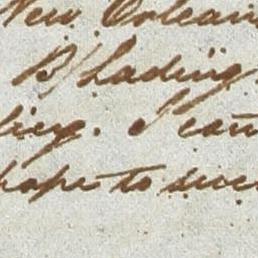 New Orlean
B/Lading
licy. I can
hope to succe